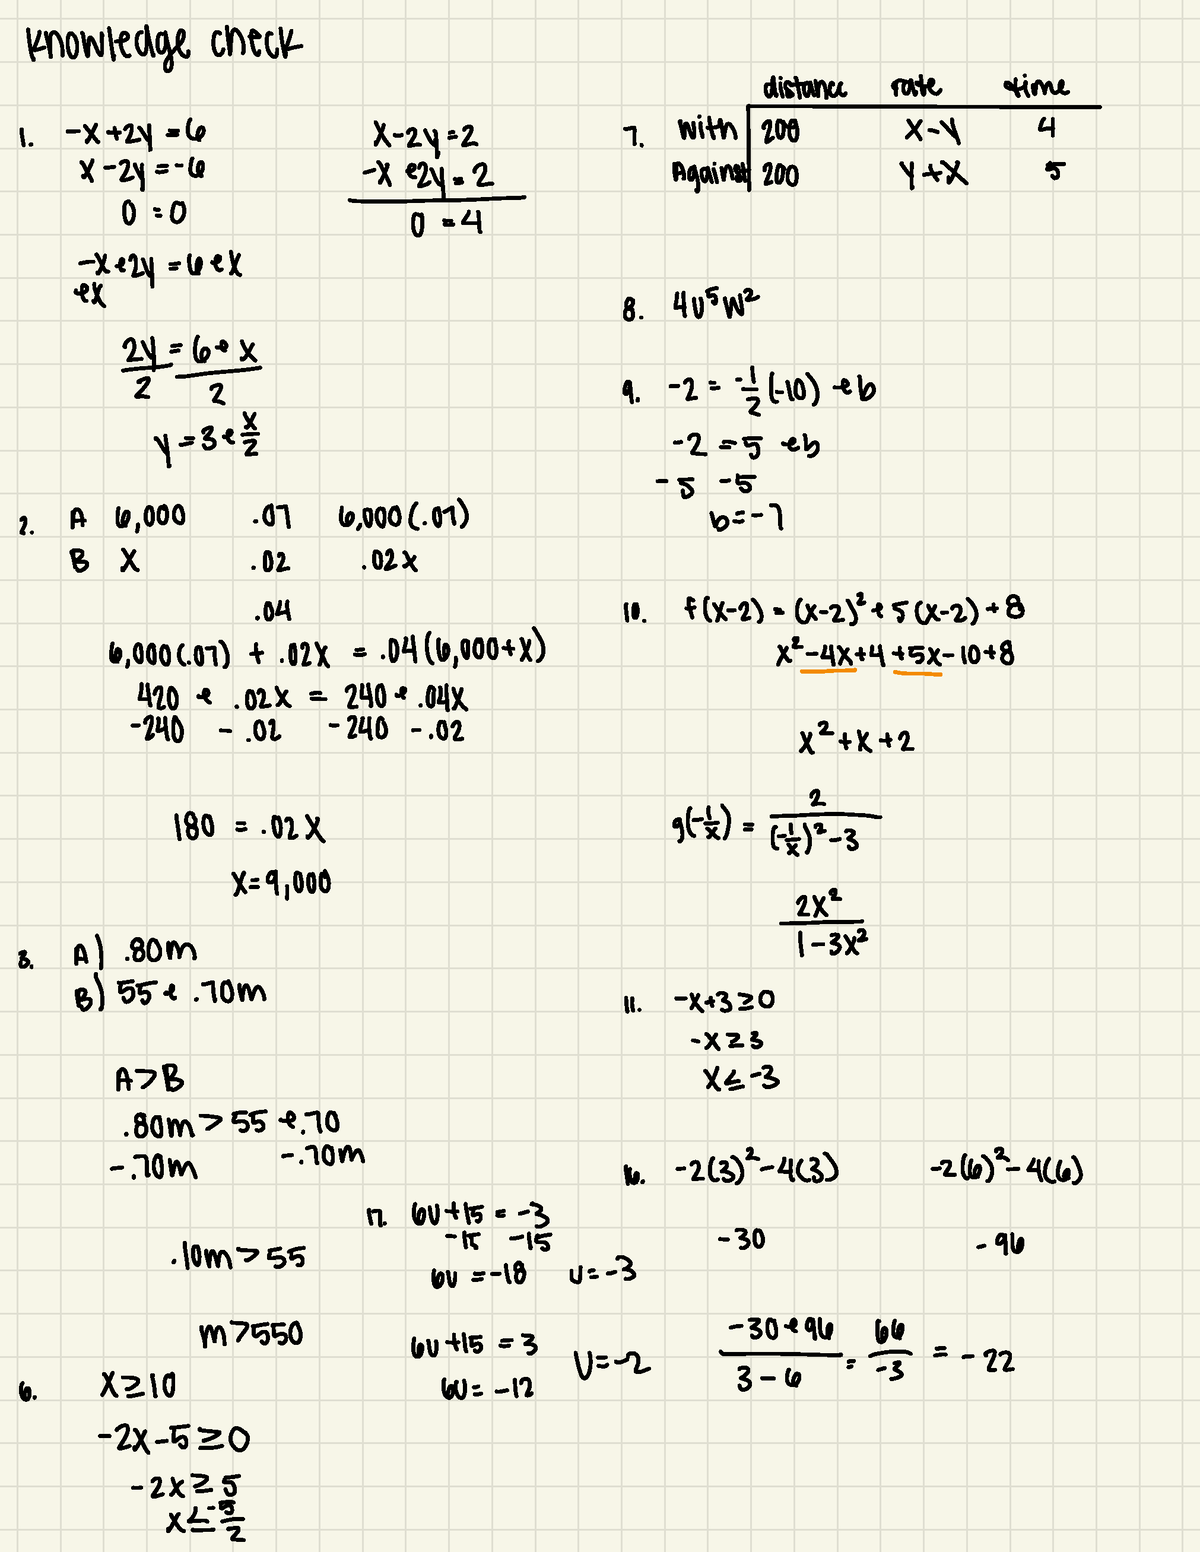 Knowledge check
1. -x+2y=6
x-2y=-6
0=0
-x+2y=6+x
+x
2y=6+x
2 2
y=3+x/2
x-2y=2
-x+2y=2
0=4
2. A 6,000 .07 6,000(.07)
B x .02 .02x
.04
6,000(.07) + .02x = .04(6,000+x)
420 + .02x = 240 + .04x
-240 - .02 -240 -.02
180 = .02x
x=9,000
3. A) .80m
B) 55+.70m
A>B
.80m>55+.70
-.70m -.70m
.10m>55
m>550
6. x≥10
-2x-5≥0
-2x≥5
x≤-5/2
17. 6u+15=-3
-15 -15
6u=-18 u=-3
6u+15=3
6u=-12 u=-2
distance rate time
7. With 200 x-y 4
Against 200 y+x 5
8. 4u⁵w²
9. -2=-1/2(-10)+b
-2=5+b
-5 -5
b=-7
10. f(x-2)=(x-2)²+5(x-2)+8
x²-4x+4+5x-10+8
x²+x+2
g(-1/x)=2/((-1/x)²-3)
2x²/(1-3x²)
11. -x+3≥0
-x≥3
x≤-3
16. -2(3)²-4(3) -2(6)²-4(6)
-30 -96
(-30+96)/(3-6)=66/-3=-22